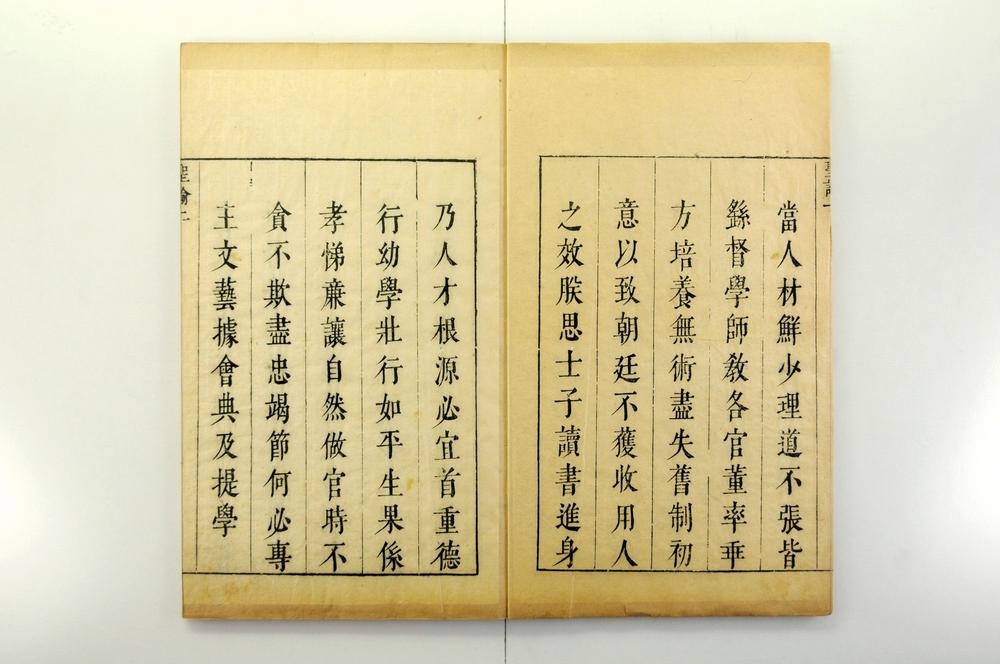 當人材鮮少理道不張皆
繇督學師教各官董率乖
方培養無術盡失舊制初
意以致朝廷不獲收用人
之效朕思士子讀書進身
乃人才根源必宜首重德
行幼學壯行如平生果係
孝悌廉讓自然做官時不
貪不欺盡忠竭節何必專
主文藝據會典及提學
聖諭二